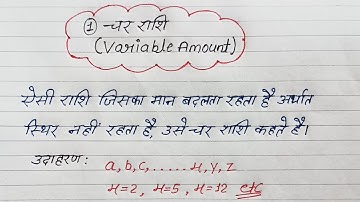 ① चर राशि
(Variable Amount)
ऐसी राशि जिसका मान बदलता रहता है अर्थात
स्थिर नहीं रहता है, उसे चर राशि कहते है।
उदाहरण:
a, b, c, ..... x, y, z
x=2, x=5, x=12 etc